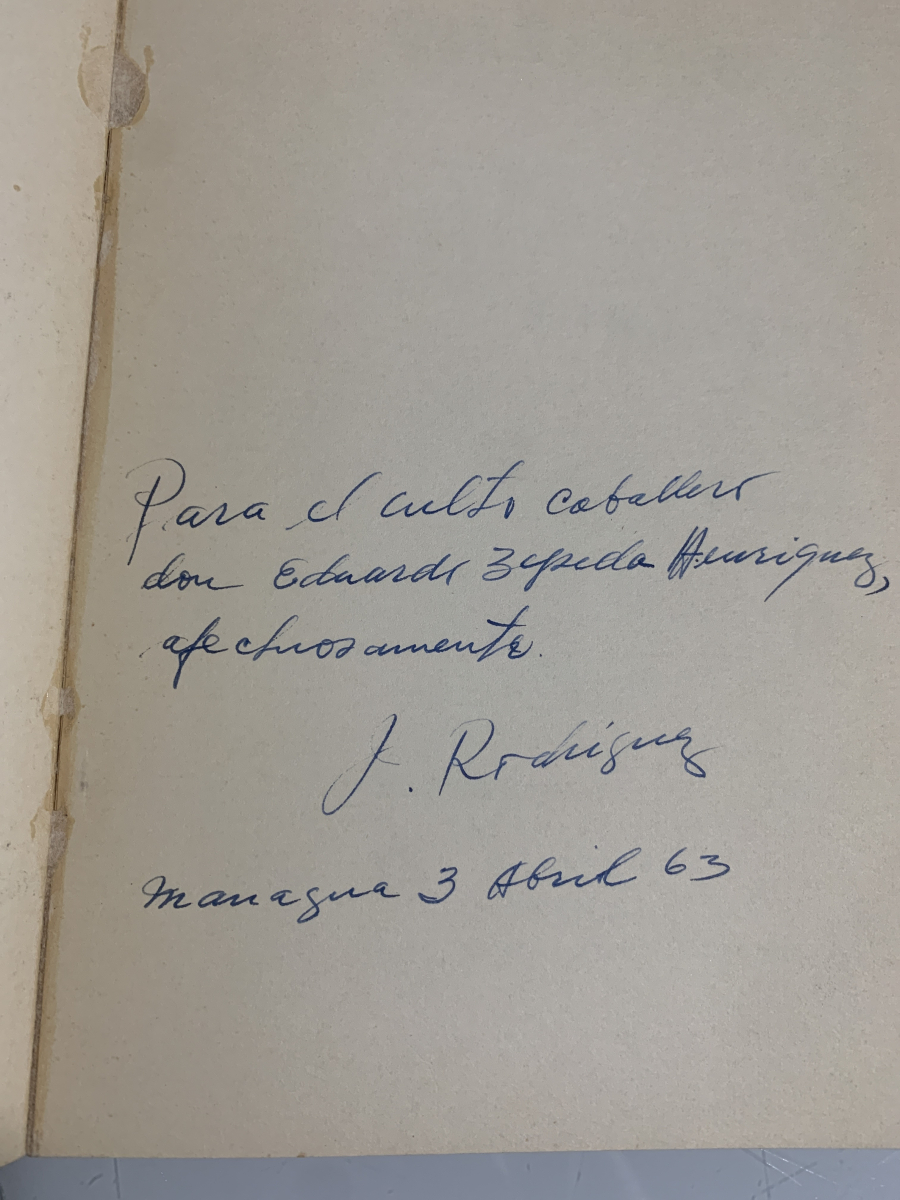 Para el culto caballero
don Eduardo Zepeda Henriquez,
afectuosamente.
J. Rodriguez
Managua 3 Abril 63